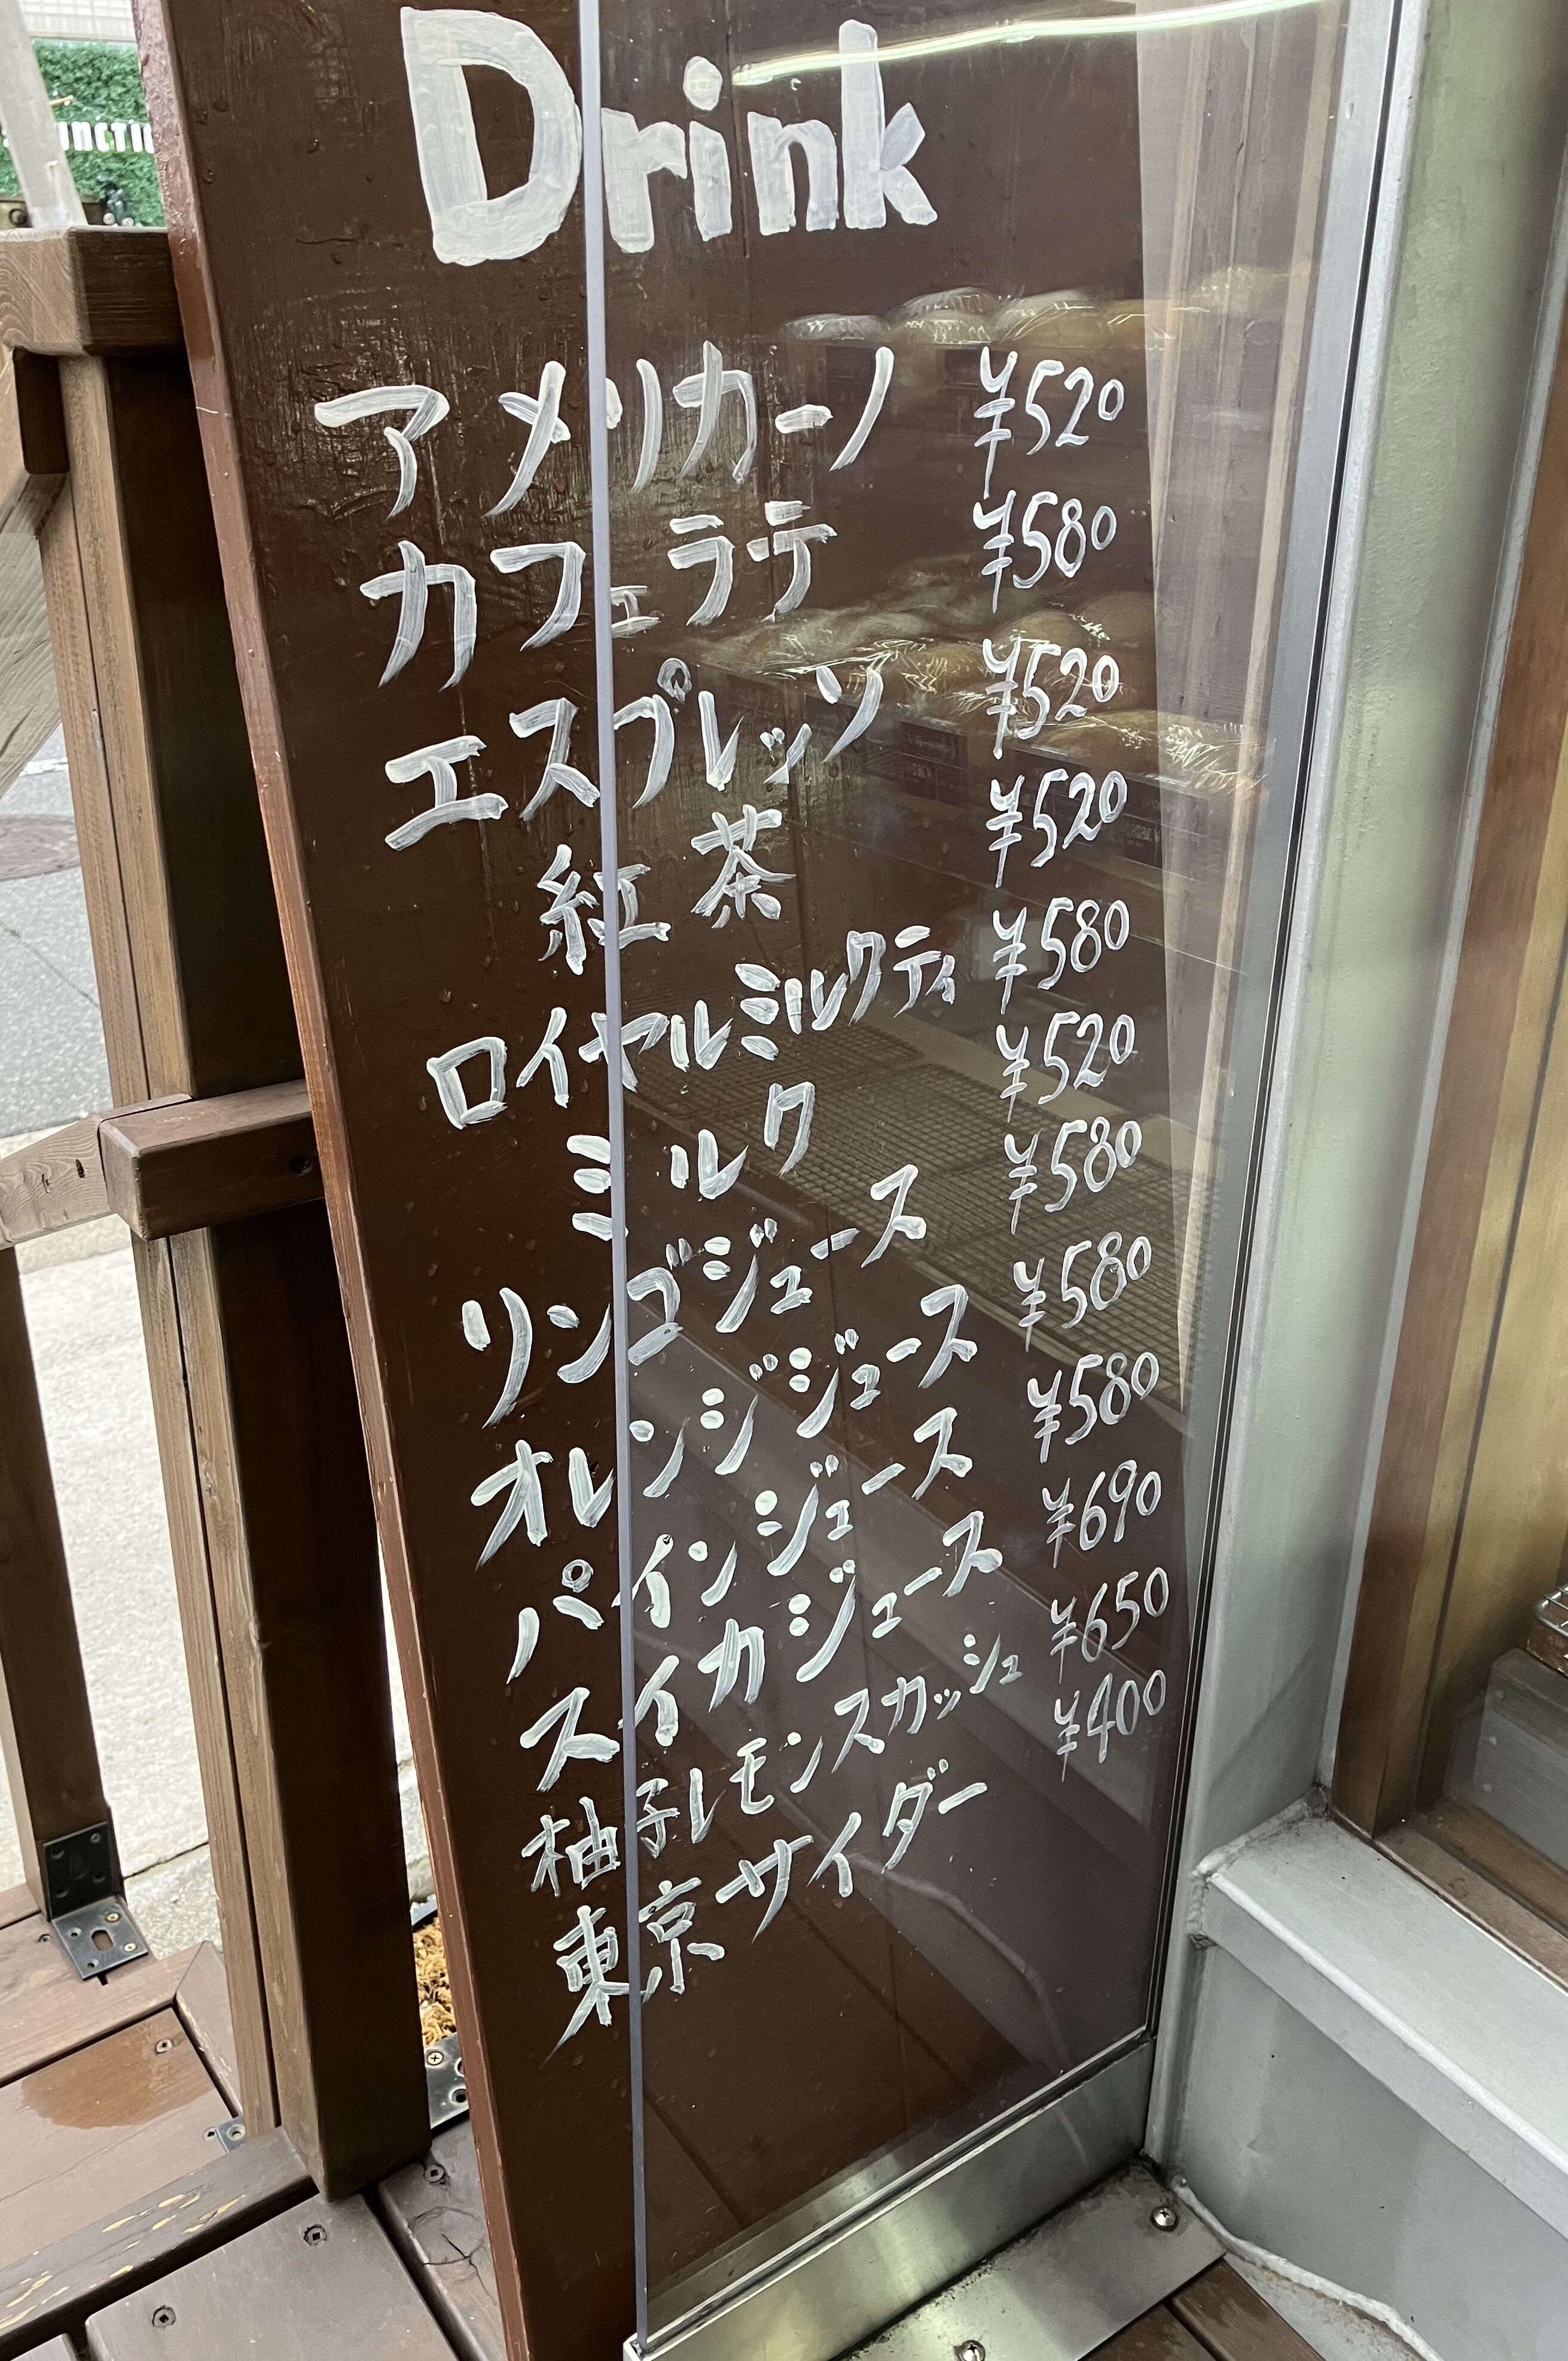 Drink
アメリカーノ ¥520
カフェラテ ¥580
エスプレッソ ¥520
紅茶 ¥520
ロイヤルミルクティ ¥580
ミルク ¥520
リンゴジュース ¥580
オレンジジュース ¥580
パインジュース ¥580
スイカジュース ¥690
柚子レモンスカッシュ ¥650
東京サイダー ¥400